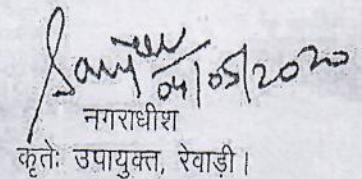 04/05/2020
नगराधीश
कृतेः उपायुक्त, रेवाड़ी।